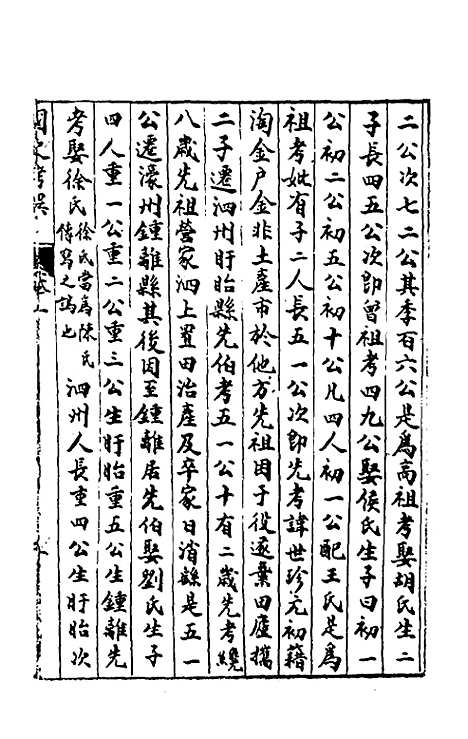 二公次七二公其季百六公是爲高祖考娶胡氏生二
子長四五公次即曾祖考四九公娶侯氏生子曰初一
公初二公初五公初十公凡四人初一公配王氏是爲
祖考妣有子二人長五一公次即先考諱世珍元初籍
淘金户金非土產市於他方先祖困于役遂棄田廬攜
二子遷泗州盱眙縣先伯考五一公十有二歲先考纔
八歲先祖營家泗上置田治產及卒家日消繇是五一
公遷濠州鍾離縣其後因至鍾離居先伯娶劉氏生子
四人重一公重二公重三公生盱眙重五公生鍾離先
考娶徐氏徐氏當爲陳氏傳寫之譌也泗州人長重四公生盱眙次
國史考異
卷一